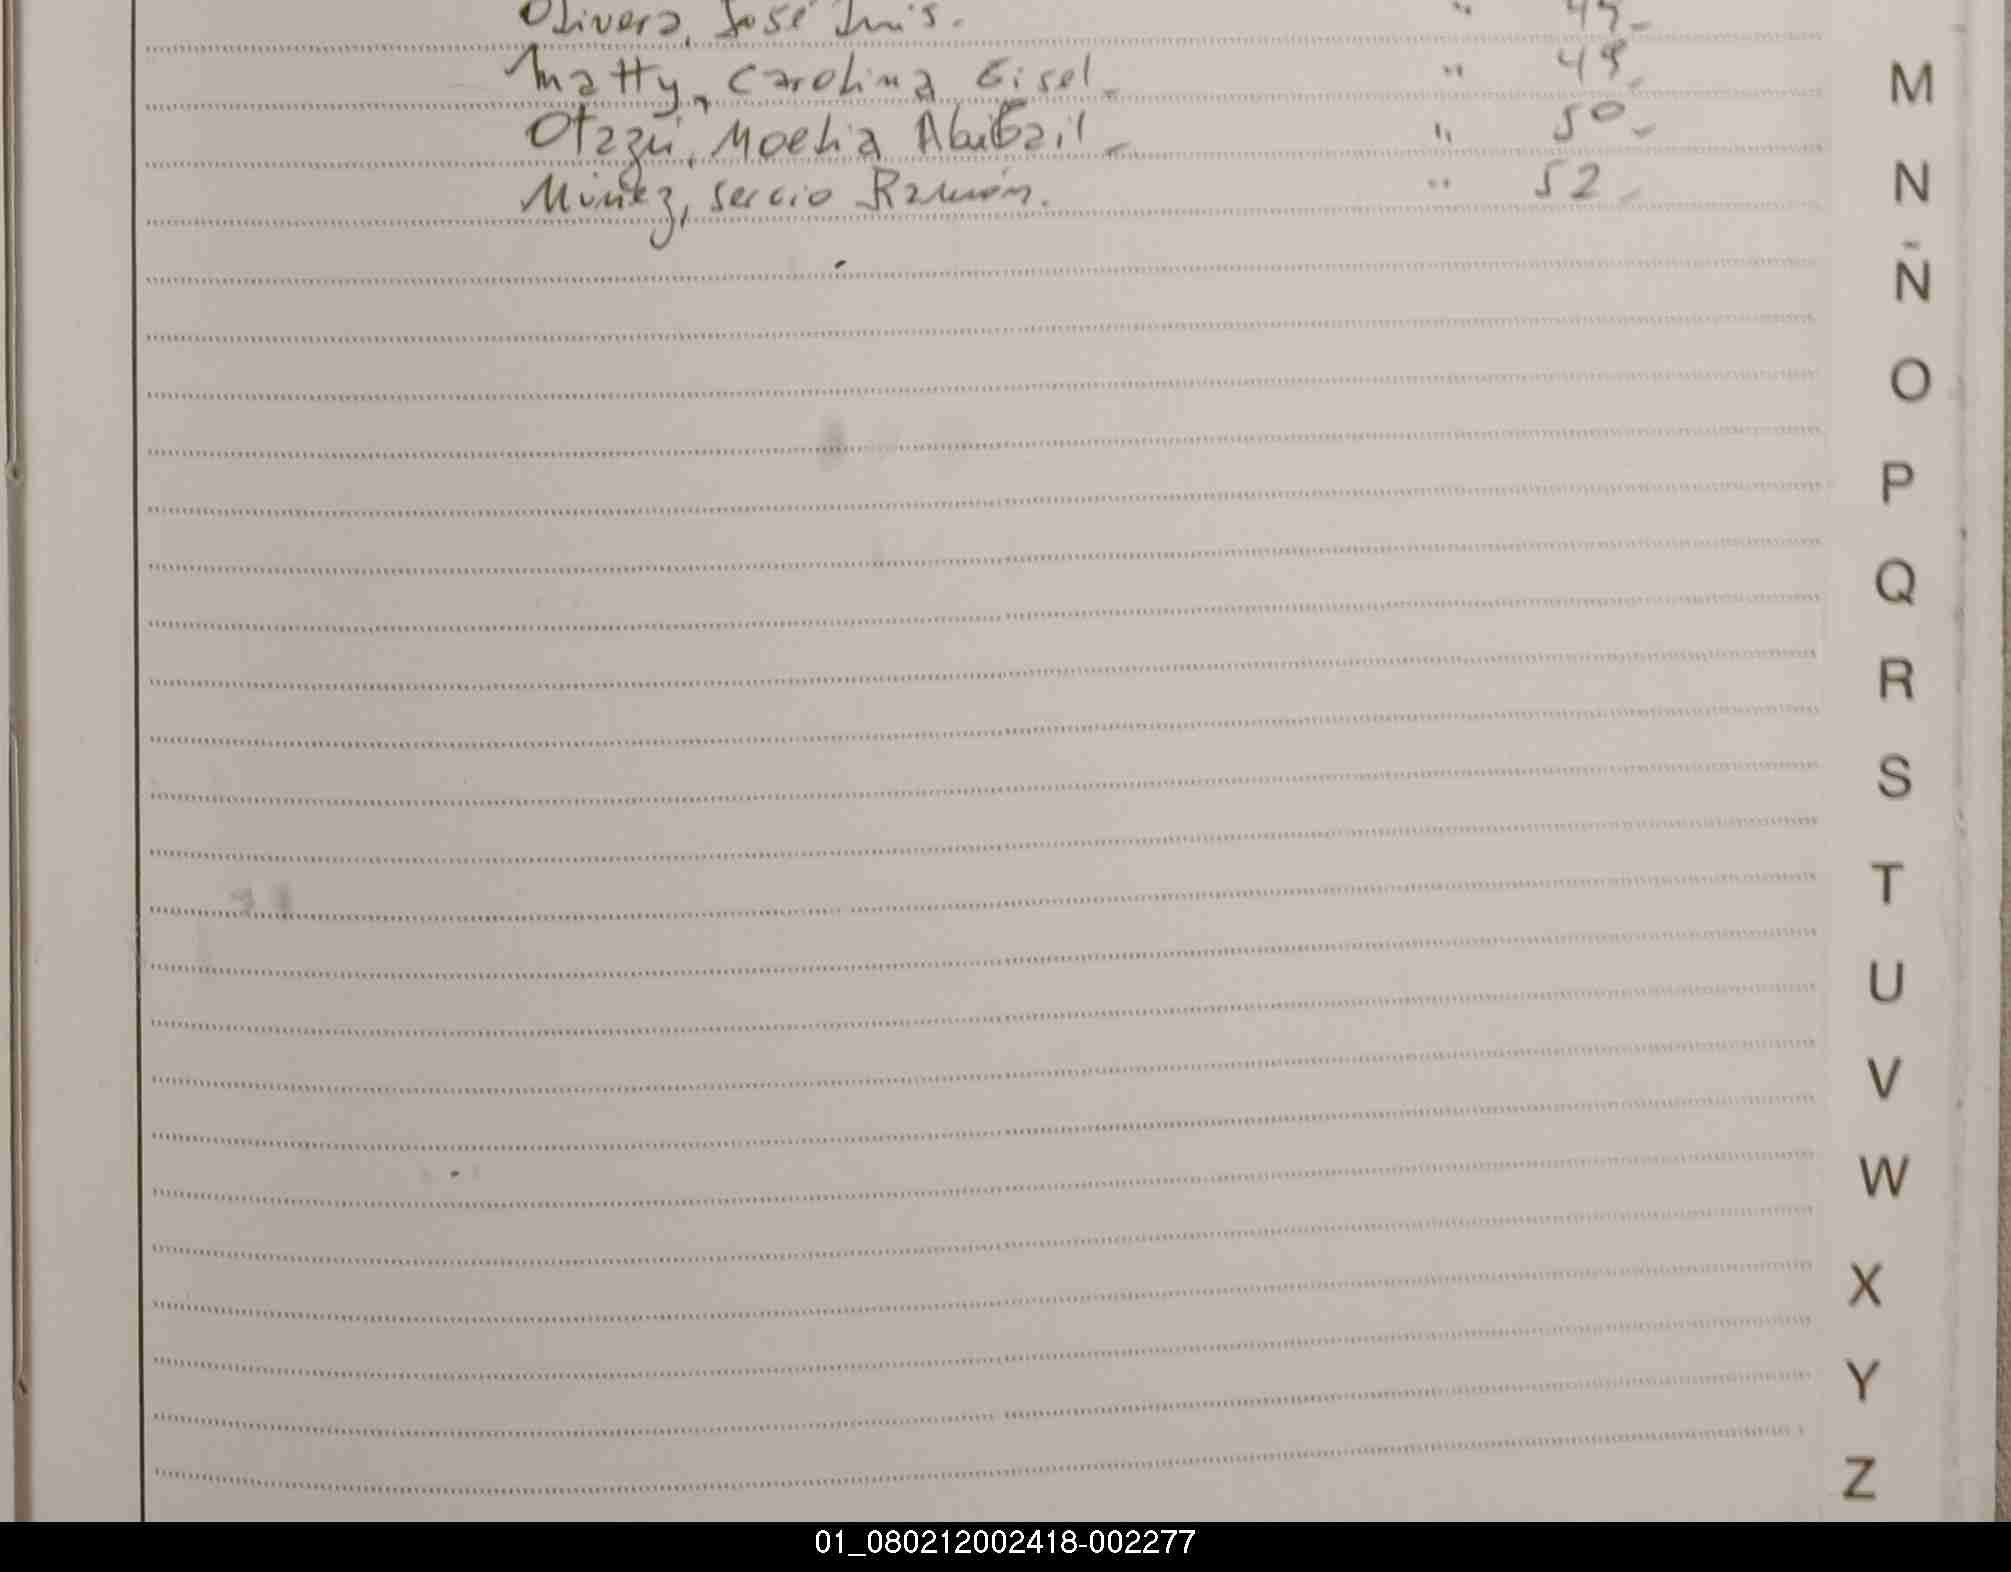 Olivera, José Luis. " 47-
Matty, Carolina Gisel. " 49-
M
Otazú, Noelia Abigail. " 50-
Núñez, Sergio Ramón. " 52-
N
Ñ
O
P
Q
R
S
T
U
V
W
X
Y
Z
01_080212002418-002277